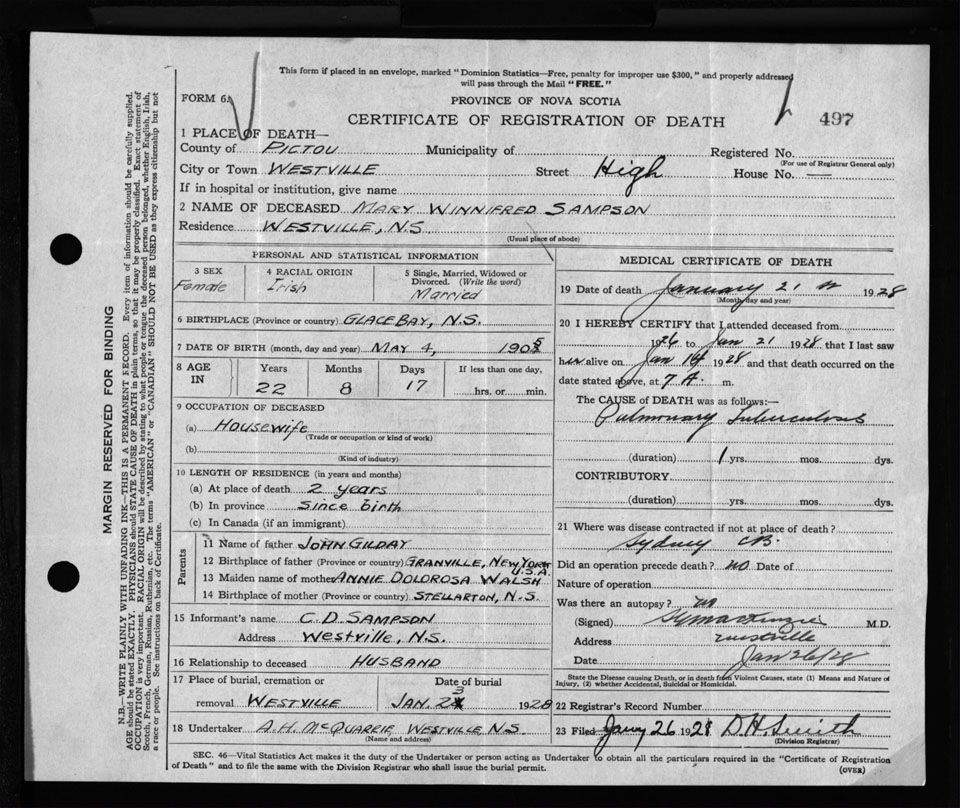 This form if placed in an envelope, marked "Dominion Statistics—Free, penalty for improper use $300," and properly addressed
will pass through the Mail "FREE."
FORM 6
PROVINCE OF NOVA SCOTIA
CERTIFICATE OF REGISTRATION OF DEATH
497
1 PLACE OF DEATH—
County of PICTOU Municipality of Registered No.
(For use of Registrar General only)
City or Town WESTVILLE Street High House No. —
If in hospital or institution, give name
2 NAME OF DECEASED MARY WINNIFRED SAMPSON
Residence WESTVILLE, N.S.
(Usual place of abode)
PERSONAL AND STATISTICAL INFORMATION
3 SEX Female
4 RACIAL ORIGIN Irish
5 Single, Married, Widowed or Divorced. (Write the word) Married
6 BIRTHPLACE (Province or country) GLACE BAY, N.S.
7 DATE OF BIRTH (month, day and year) MAY 4, 1905
8 AGE IN Years 22 Months 8 Days 17 If less than one day, hrs. or min.
9 OCCUPATION OF DECEASED
(a) Housewife
(Trade or occupation or kind of work)
(b)
(Kind of industry)
10 LENGTH OF RESIDENCE (in years and months)
(a) At place of death 2 years
(b) In province Since birth
(c) In Canada (if an immigrant)
Parents
11 Name of father JOHN GILDAY
12 Birthplace of father (Province or country) GRANVILLE, NEW YORK U.S.A.
13 Maiden name of mother ANNIE DOLOROSA WALSH
14 Birthplace of mother (Province or country) STELLARTON, N.S.
15 Informant's name C.D. SAMPSON
Address Westville, N.S.
16 Relationship to deceased HUSBAND
17 Place of burial, cremation or removal WESTVILLE
Date of burial JAN. 23 1928
18 Undertaker A.H. McQUARRIE WESTVILLE N.S.
(Name and address)
MEDICAL CERTIFICATE OF DEATH
19 Date of death January 21 1928
(Month day and year)
20 I HEREBY CERTIFY that I attended deceased from
1926 to Jan 21 1928 that I last saw
her alive on Jan 14 1928 and that death occurred on the
date stated above, at 7 A. m.
The CAUSE of DEATH was as follows:—
Pulmonary Tuberculosis
(duration) 1 yrs. mos. dys.
CONTRIBUTORY
(duration) yrs. mos. dys.
21 Where was disease contracted if not at place of death?
Sydney CB.
Did an operation precede death? no Date of
Nature of operation
Was there an autopsy? no
(Signed) M.D.
Address Westville
Date Jan 26/28
State the Disease causing Death, or in death from Violent Causes, state (1) Means and Nature of
Injury, (2) whether Accidental, Suicidal or Homicidal.
22 Registrar's Record Number
23 Filed Jany 26 1928 D.H. Smith
(Division Registrar)
SEC. 46—Vital Statistics Act makes it the duty of the Undertaker or person acting as Undertaker to obtain all the particulars required in the "Certificate of Registration
of Death" and to file the same with the Division Registrar who shall issue the burial permit.
(OVER)
MARGIN RESERVED FOR BINDING
N.B.—WRITE PLAINLY WITH UNFADING INK—THIS IS A PERMANENT RECORD. Every item of information should be carefully supplied.
AGE should be stated EXACTLY. PHYSICIANS should STATE CAUSE OF DEATH in plain terms, so that it may be properly classified. Exact statement of
OCCUPATION is very important. RACIAL ORIGIN will be described by stating to what people or tongue the deceased person belonged, whether English, Irish,
Scotch, French, German, Russian, Ruthenian, etc. The terms "AMERICAN" or "CANADIAN" SHOULD NOT BE USED as they express citizenship but not
a race or people. See instructions on back of Certificate.